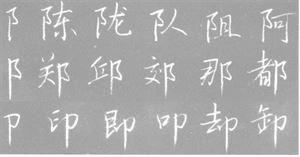 阝陈陇队阻阿
阝郑邱郊那都
卩印即叩却卸